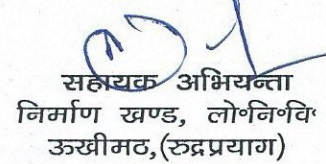 सहायक अभियन्ता
निर्माण खण्ड, लो॰नि॰वि॰
ऊखीमठ,(रुद्रप्रयाग)